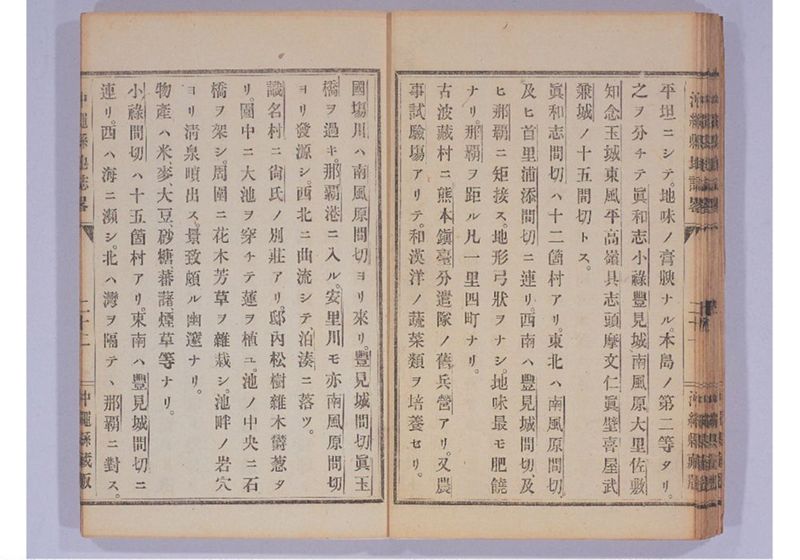 平坦ニシテ。地味ノ膏腴ナル。本島ノ第二等タリ。
之ヲ分チテ眞和志小祿豐見城南風原大里佐敷
知念玉城東風平高嶺具志頭摩文仁眞壁喜屋武
兼城ノ十五間切トス。
眞和志間切ハ十二箇村アリ。東北ハ南風原間切
及ヒ首里浦添間切ニ連リ。西南ハ豐見城間切、及
ヒ那覇ニ矩接ス。地形弓狀ヲナシ。地味最モ肥饒
ナリ。那覇ヲ距ル凡一里四町ナリ。
古波藏村ニ熊本鎭臺分遣隊ノ舊兵營アリ。又農
事試驗塲アリテ。和漢洋ノ蔬菜類ヲ培養セリ。
國塲川ハ南風原間切ヨリ來リ。豐見城間切眞玉
橋ヲ過キ。那覇港ニ入ル。安里川モ亦南風原間切
ヨリ發源シ。西北ニ曲流シテ、泊湊ニ落ツ。
識名村ニ尙氏ノ別莊アリ。邸內松樹雜木欝葱タ
リ。園中ニ大池ヲ穿チテ蓮ヲ植ユ。池ノ中央ニ石
橋ヲ架シ。周圍ニ花木芳草ヲ雜栽シ。池畔ノ岩穴
ヨリ淸泉噴出ス。景致頗ル幽邃ナリ。
物產ハ米、麥、大豆、砂糖蕃藷煙草等ナリ。
小祿間切ハ十五箇村アリ。東南ハ豐見城間切ニ
連リ。西ハ海ニ瀕シ。北ハ灣ヲ隔テヽ那覇ニ對ス。
沖繩縣地誌畧
二十二
沖繩縣藏版